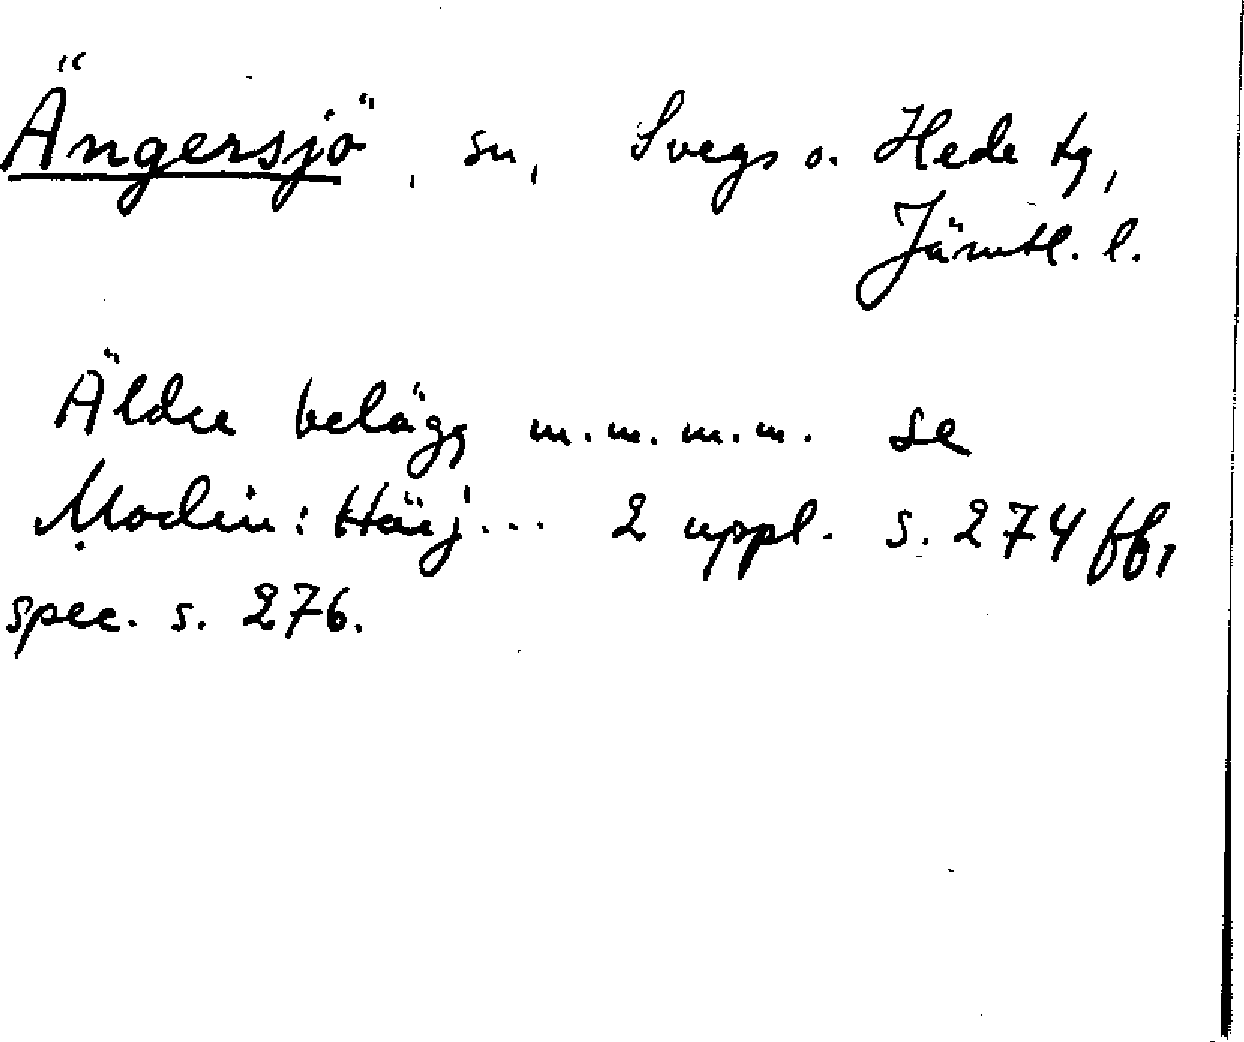 Ängersjö, sn, Svegs o. Hede tg,
Jämtl. l.
Äldre belägg m.m.m.m. se
Modin: Härj... 2 uppl. s. 274 ff,
spec. s. 276.